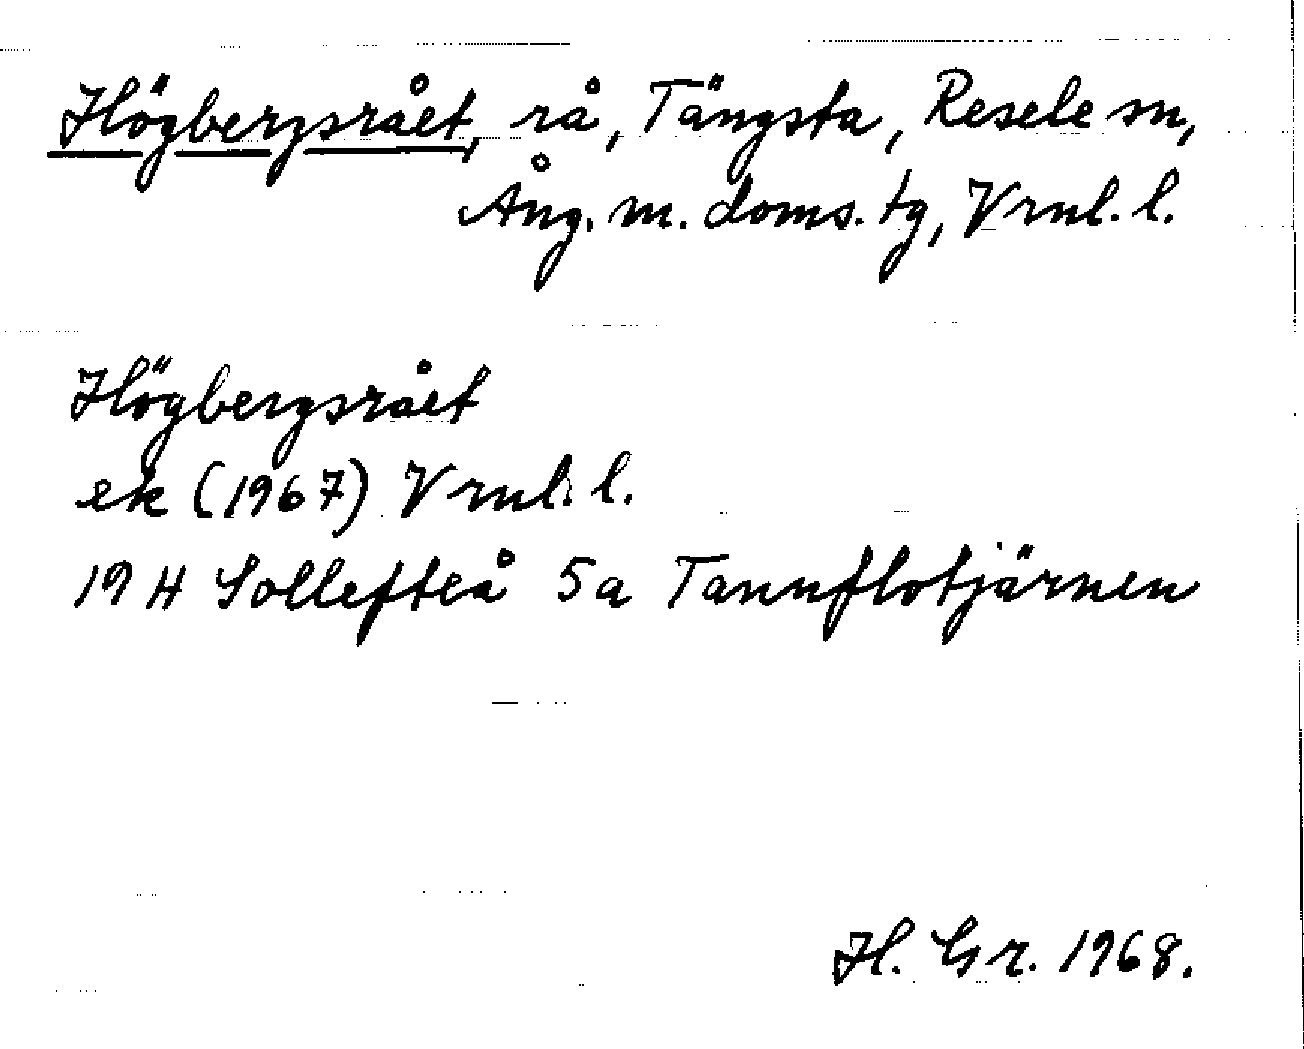 Högbergsrået, rå, Tängsta, Resele sn,
Ång. m. doms. tg, Vrnl. l.
Högbergsrået
ek (1967) Vrnl. l.
19 H Sollefteå 5a Tannflotjärnen
H. Gr. 1968.